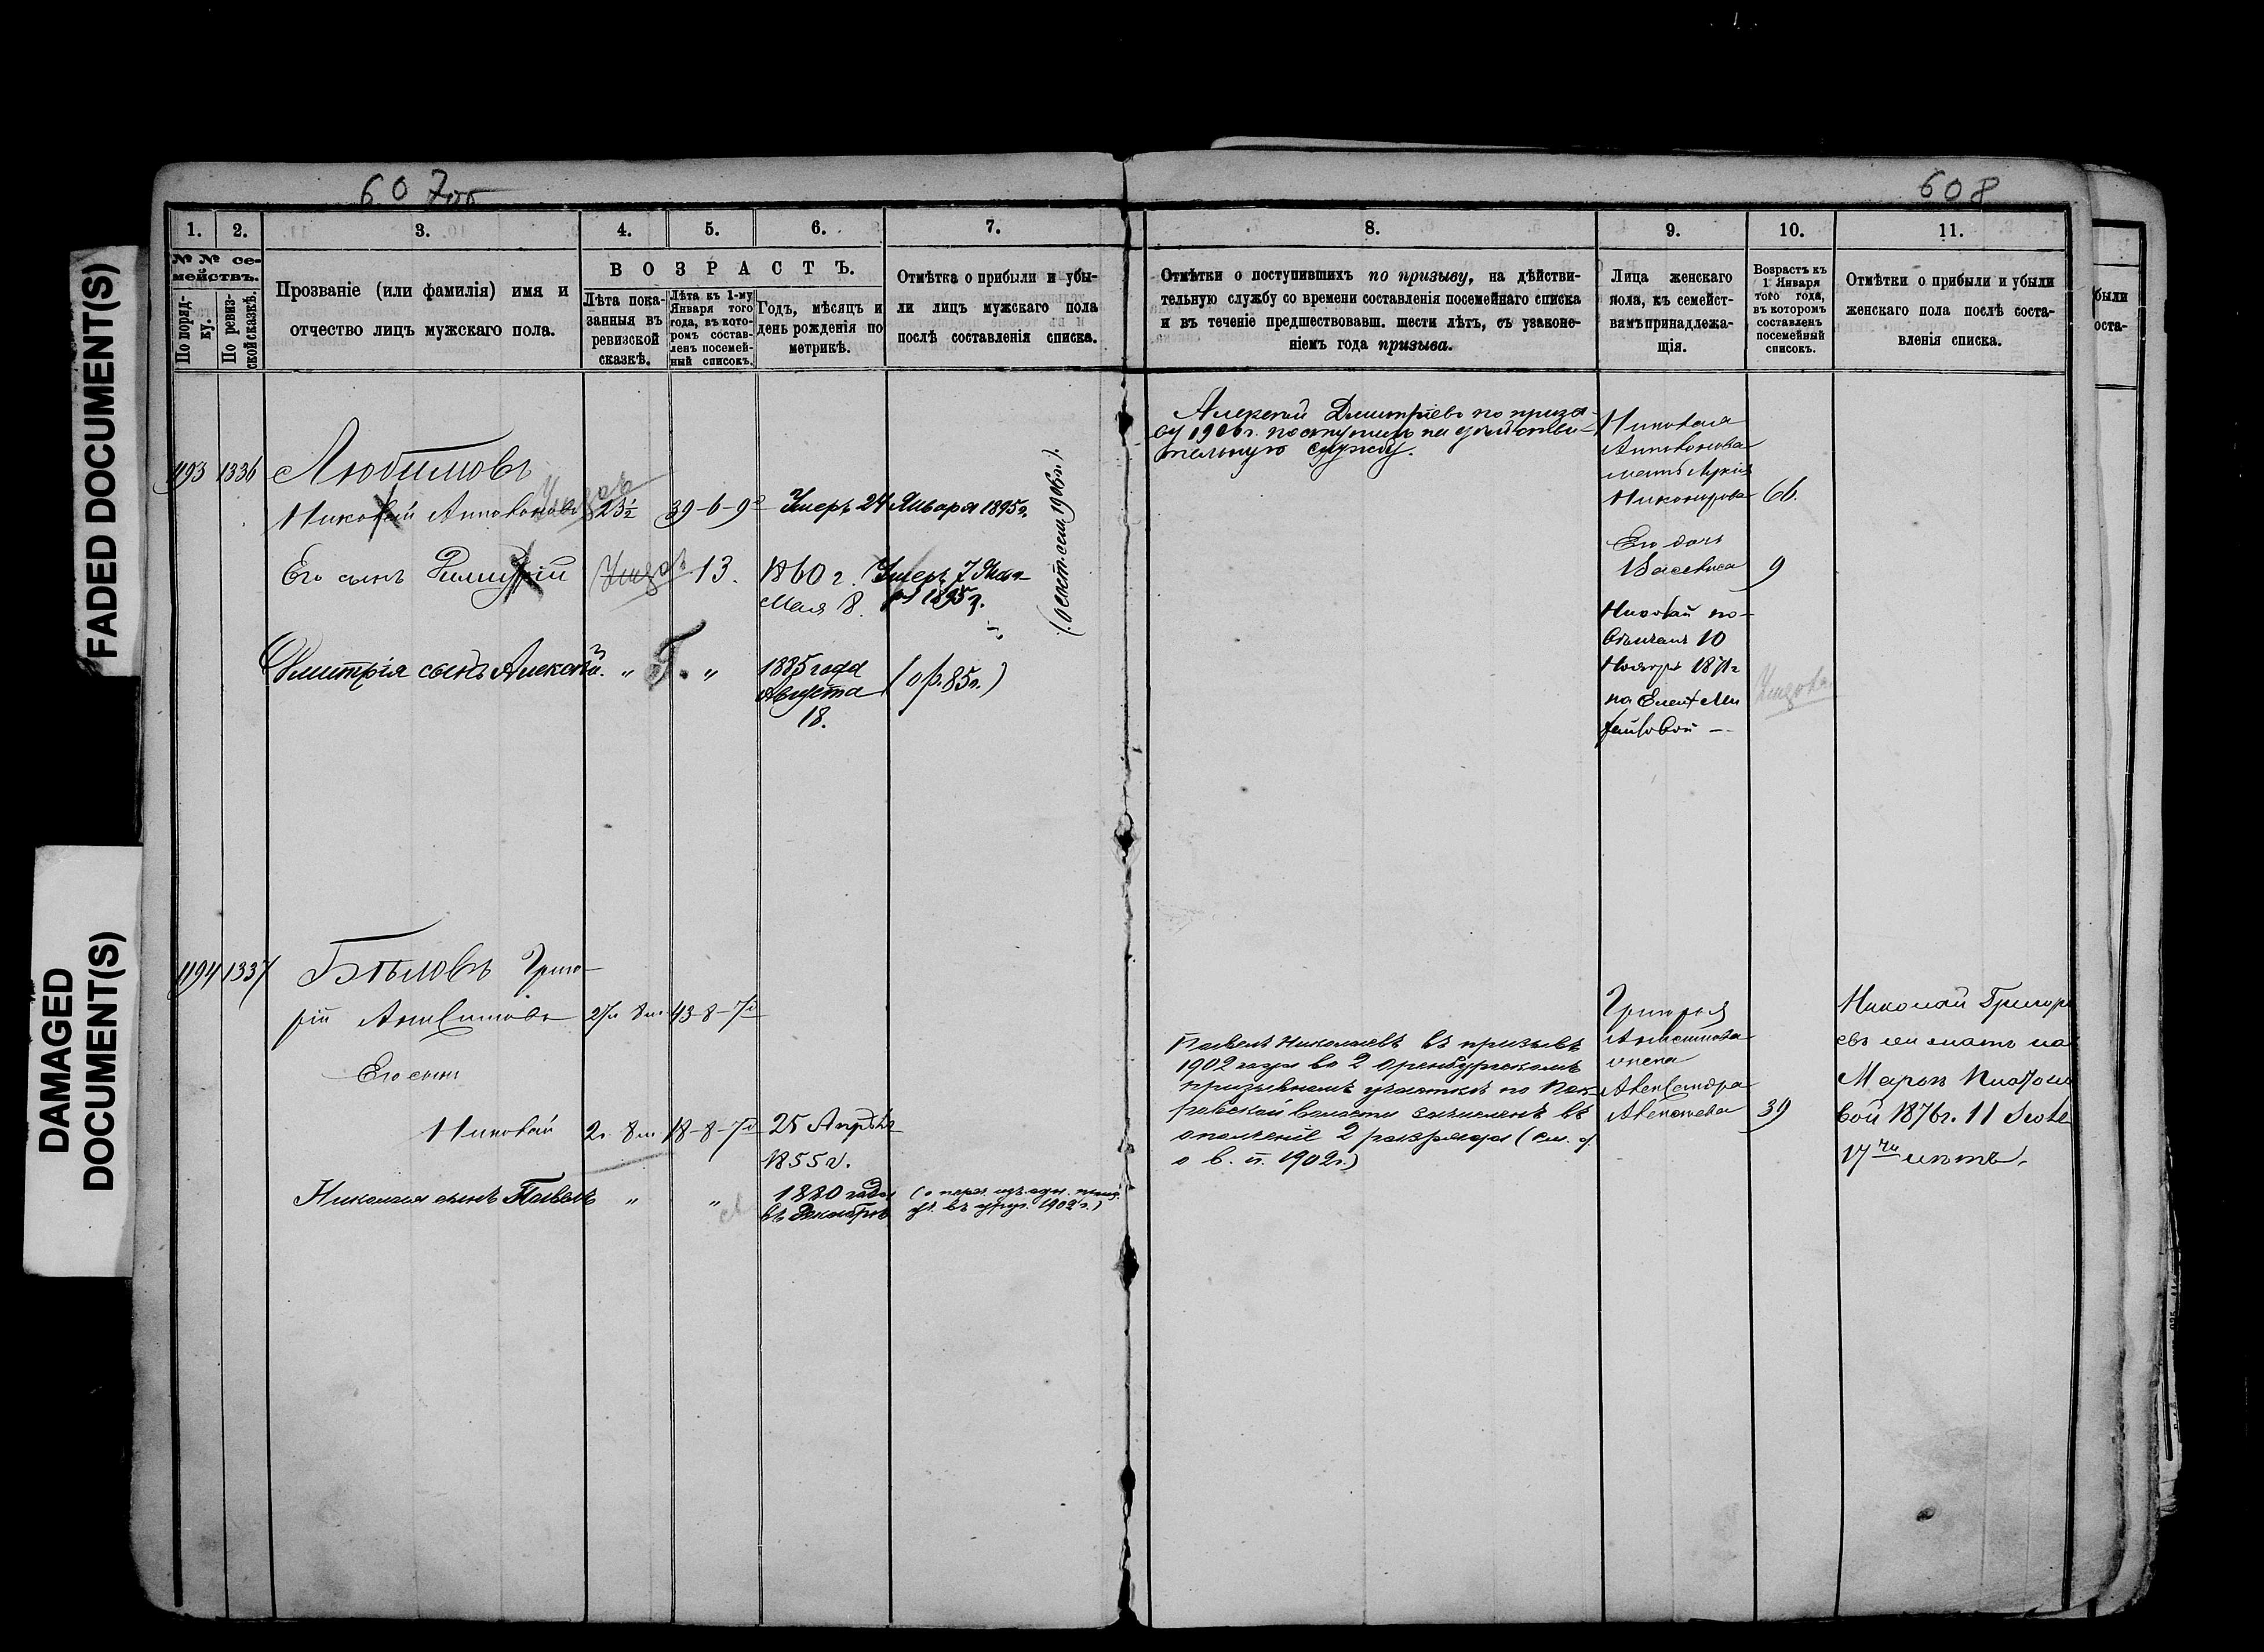 FADED DOCUMENT(S)
DAMAGED
DOCUMENT(S)
607об
608
1.
2.
3.
4.
5.
6.
7.
№ № се-
мействъ.
По поряд-
ку.
По ревиз-
ской сказкѣ.
Прозваніе (или фамилія) имя и
отчество лицъ мужскаго пола.
ВОЗРАСТЪ.
Лѣта пока-
занныя въ
ревизской
сказкѣ.
Лѣта къ 1-му
Января того
года, въ кото-
ромъ состав-
ленъ посемей-
ный списокъ.
Годъ, мѣсяцъ и
день рожденія по
метрикѣ.
Отмѣтка о прибыли и убы-
ли лицъ мужскаго пола
послѣ составленія списка.
493
1336
Любимовъ
Николай
23½
39-6-9
Умеръ 24 Января 1895 г.
Его сынъ Димитрій
13.
1860 г.
Мая 8.
Умеръ 7 Янва
ря 1895 г.
Дмитрія сынъ Алексѣй.
„
„
1885 года
Августа
18.
(о р. 85 г.)
494
1337
Бѣловъ Григо-
рій
43-8-7
Его сынъ
Николай
2 г. 8 м.
18-8-7
25 Апрѣля
1855 г.
Николая сынъ Павелъ
„
„
1880 года
въ Декабрѣ
1902 г.)
8.
9.
10.
11.
Отмѣтки о поступившихъ по призыву, на дѣйстви-
тельную службу со времени составленія посемейнаго списка
и въ теченіе предшествовавш. шести лѣтъ, съ узаконе-
ніемъ года призыва.
Лица женскаго
пола, къ семейст-
вамъ принадлежа-
щія.
Возрастъ къ
1 Января
того года,
въ которомъ
составленъ
посемейный
списокъ.
Отмѣтки о прибыли и убыли
женскаго пола послѣ соста-
вленія списка.
были
оста-
Алексѣй Дмитріевъ по призы
ву 1906 г. поступилъ на дѣйстви-
тельную службу.
Николая
мать
66.
Его дочь
Василиса
9
Николай по-
вѣнчанъ 10
Ноября 1871 г
на
Павелъ Николаевъ въ призывъ
1902 года во 2 Оренбургскомъ
призывномъ участкѣ по Пок-
ровской волости зачисленъ въ
ополченіе 2 разряда (см. д.
о в. п. 1902 г.)
Григорія
жена
Александра
Алексѣева
39
Николай Григорь
евъ
1876 г. 11
17 лѣтъ.